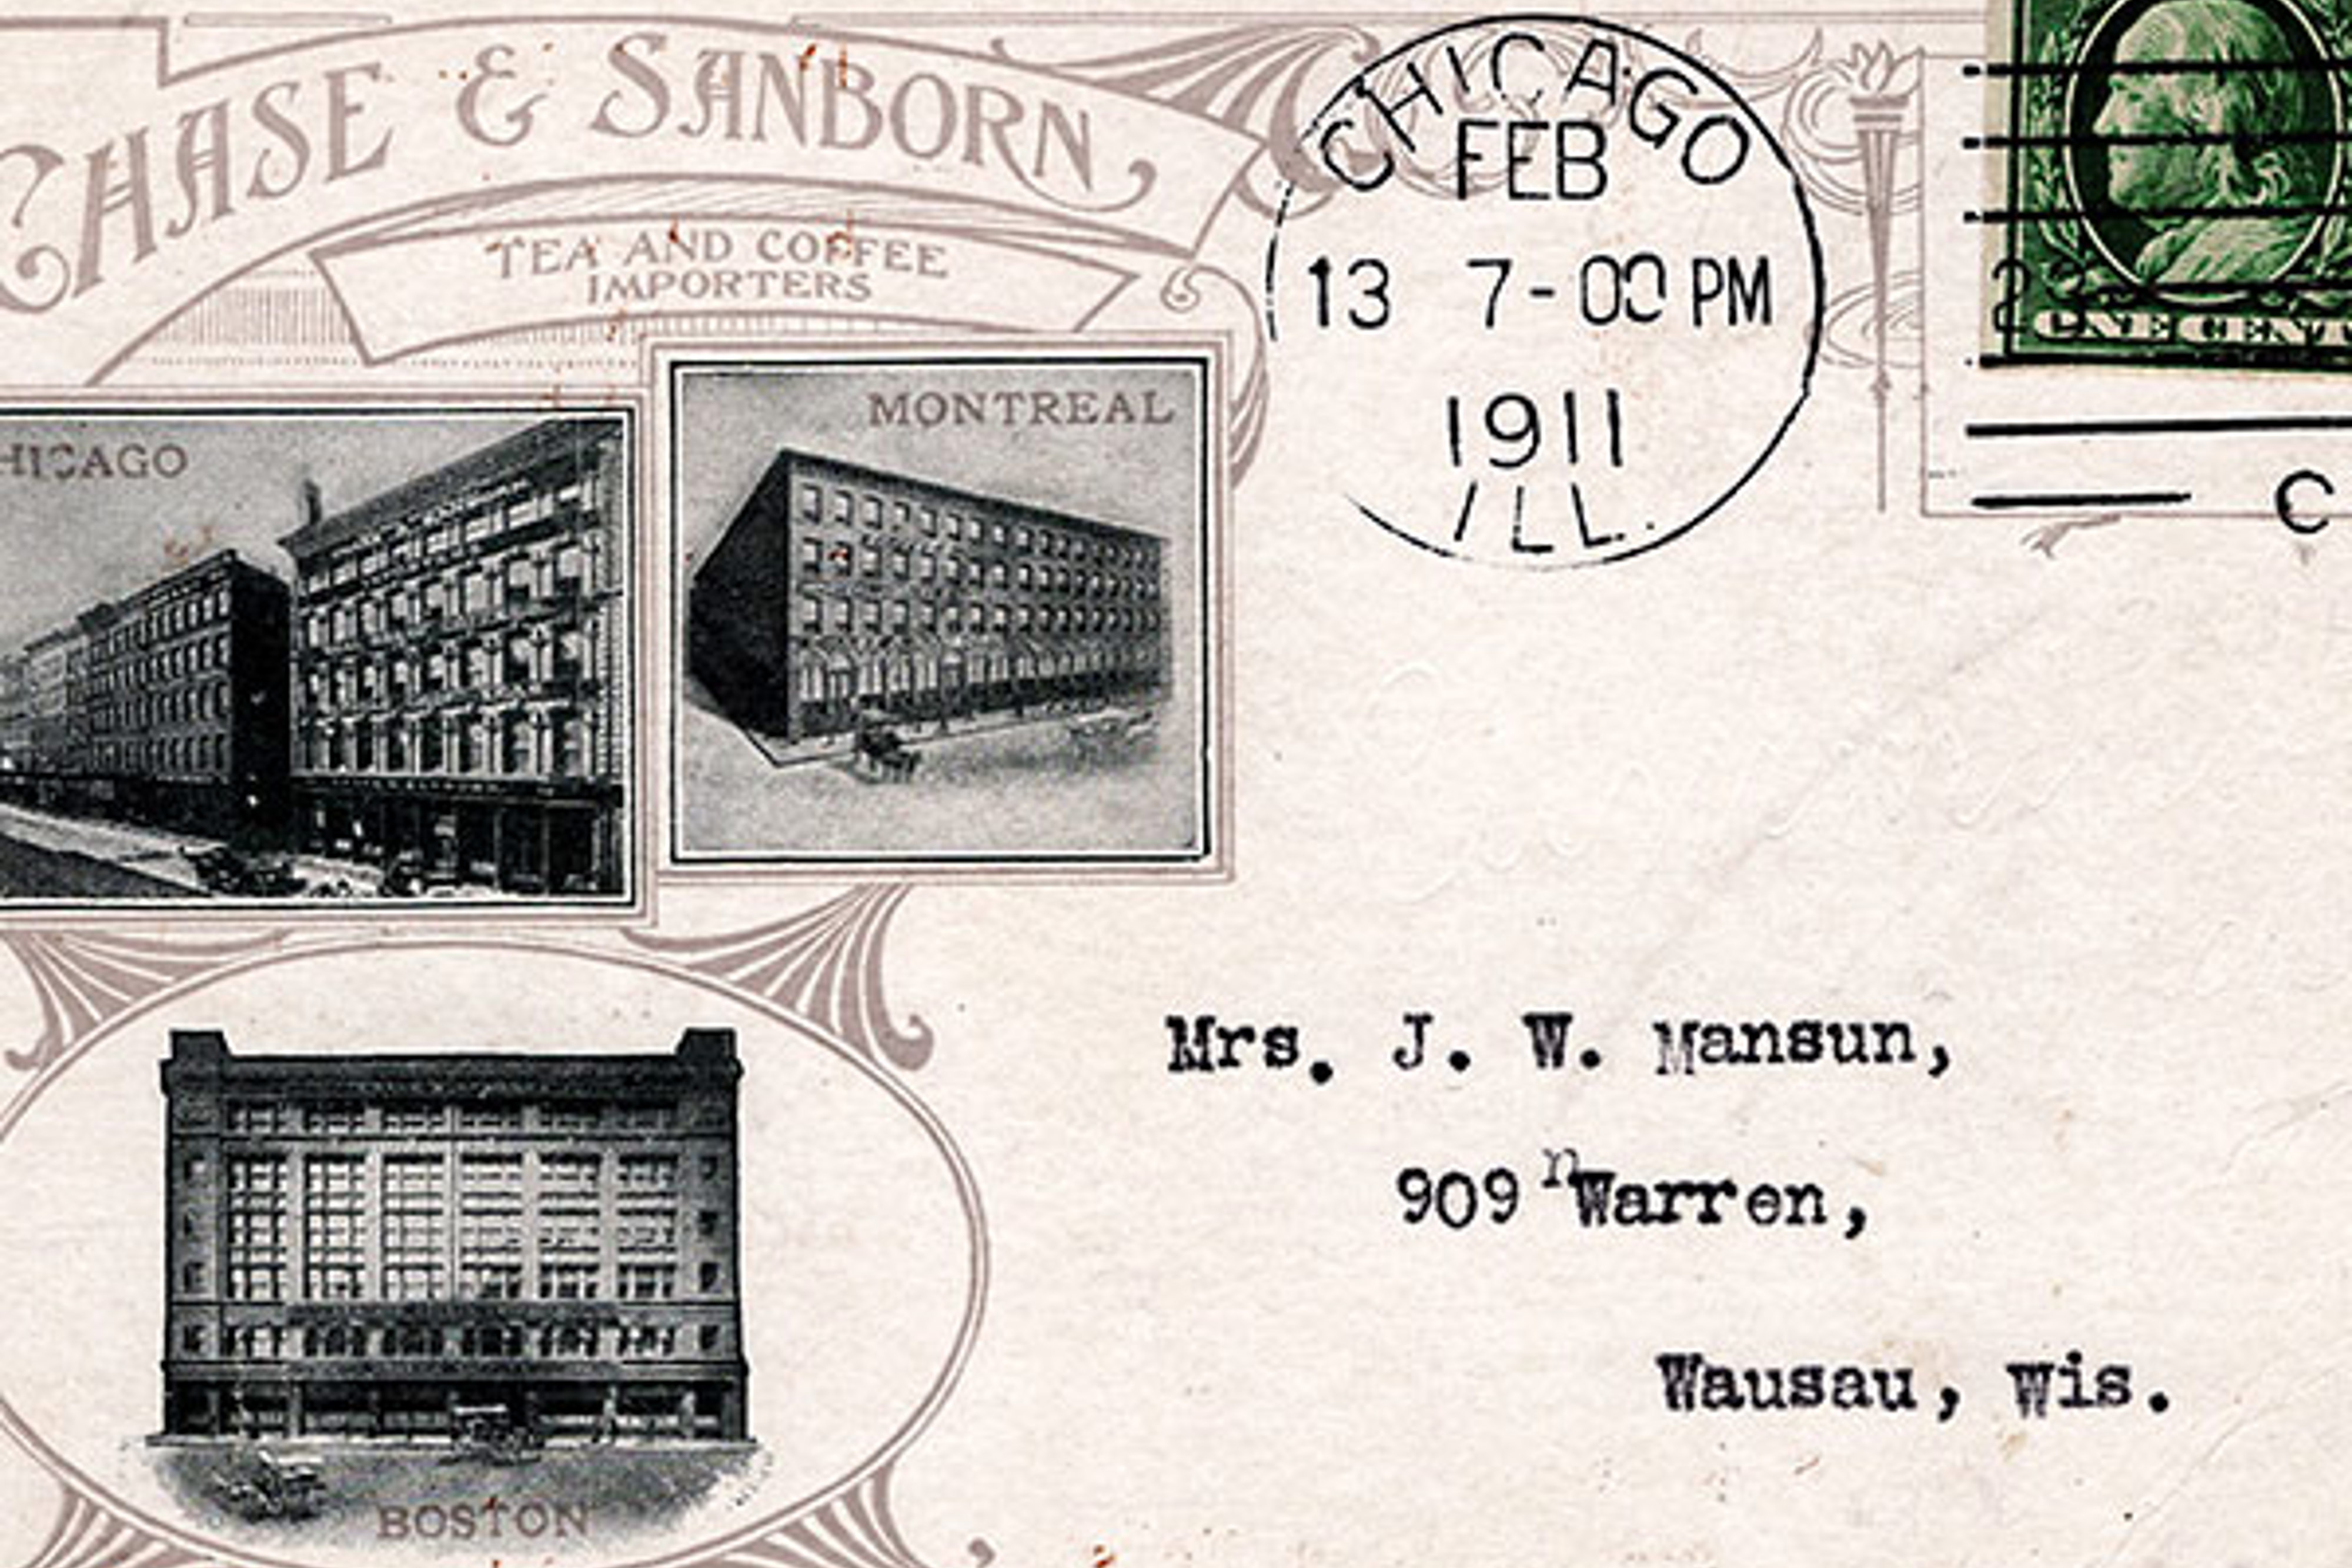 CHASE & SANBORN,
TEA AND COFFEE
IMPORTERS
CHICAGO
FEB
13 7-00 PM
1911
ILL.
ONE CENT
HICAGO
MONTREAL
C
Mrs. J. W. Mansun,
909 n Warren,
Wausau, Wis.
BOSTON